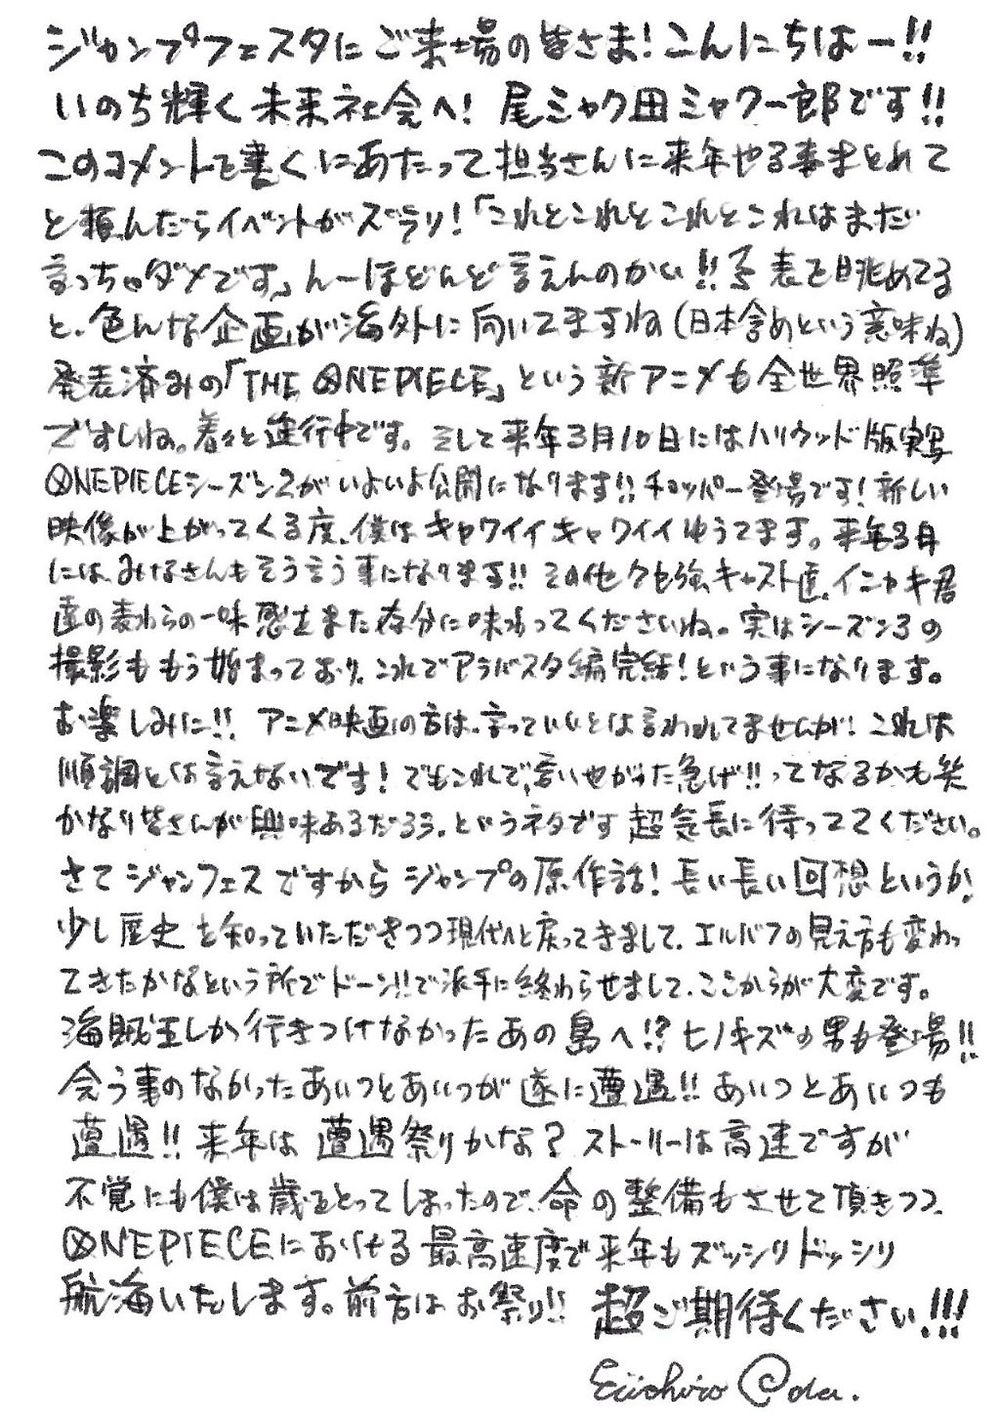 ジャンプフェスタにご来場の皆さま!こんにちはー!!
いのち輝く未来社会へ! 尾ミャク田ミャク一郎です!!
このコメントを書くにあたって担当さんに来年やる事まとめて
と頼んだらイベントがズラリ!「これとこれとこれとこれはまだ
言っちゃダメです」んーほどんど言えんのかい!!予表を眺めてる
と、色んな企画が海外に向いてますね(日本含めという意味ね)
発表済みの「THE ONE PIECE」という新アニメも全世界照準
ですしね。着々と進行中です。そして来年3月10日にはハリウッド版実写
ONE PIECEシーズン2がいよいよ公開になります!!チョッパー登場です!新しい
映像が上がってくる度、僕はキャワイイキャワイイゆうてます。来年3月
には、みなさんもそう言う事になります!!その他クセ強キャスト達、イニャキ君
達の麦わらの一味感をまた存分に味わってくださいね。実はシーズン3の
撮影ももう始まっており、これでアラバスタ編完結!という事になります。
お楽しみに!! アニメ映画の方は、言っていいとは言われてませんが!これは
順調とは言えないです!でもこれで、言いやがった急げ!!ってなるかも笑
かなり皆さんが興味あるだろう、というネタです超気長に待っててください。
さてジャンフェスですからジャンプの原作話!長い長い回想というか、
少し歴史を知っていただきつつ現代へと戻ってきまして、エルバフの見え方も変わっ
てきたかなという所でドーン!!で派手に終わらせまして、ここからが大変です。
海賊王しか行きつけなかったあの島へ!?ヒノキズの男も登場!!
会う事のなかったあいつとあいつが遂に遭遇!! あいつとあいつも
遭遇!!来年は遭遇祭りかな?ストーリーは高速ですが
不覚にも僕は歳をとってしまったので、命の整備もさせて頂きつつ、
ONE PIECEにおける最高速度で来年もズッシリドッシリ
航海いたします。前方はお祭り!! 超ご期待ください!!!
Eiichiro Oda.